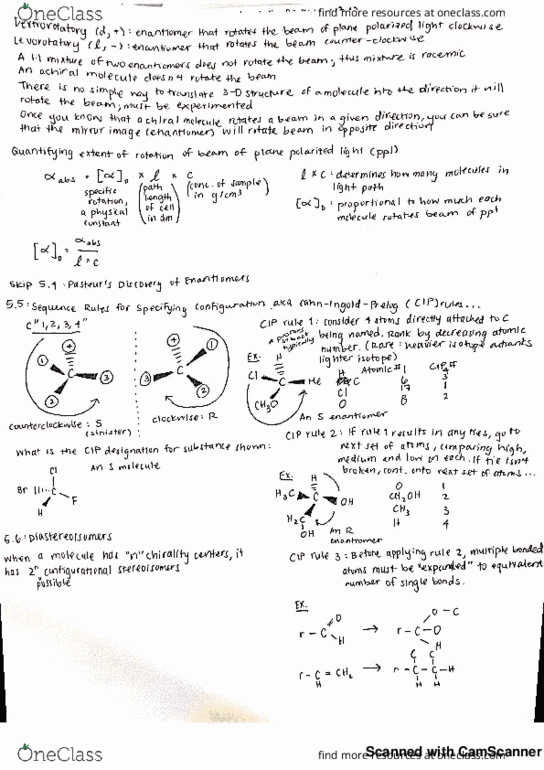 OneClass
find more resources at oneclass.com
Dextrorotatory (d, +) : enantiomer that rotates the beam of plane polarized light clockwise
Levorotatory (l, -) : enantiomer that rotates the beam counter-clockwise
A 1:1 mixture of two enantiomers does not rotate the beam; this mixture is racemic
An achiral molecule doesn't rotate the beam
There is no simple way to translate 3-D structure of a molecule into the direction it will
rotate the beam; must be experimented
Once you know that a chiral molecule rotates a beam in a given direction, you can be sure
that the mirror image (enantiomer) will rotate beam in opposite direction
Quantifying extent of rotation of beam of plane polarized light (ppl)
α abs = [α]D × l × c
specific rotation, a physical constant
(path length of cell in dm)
(conc. of sample in g/cm3)
l × c : determines how many molecules in
light path
[α]D : proportional to how much each
molecule rotates beam of ppl
[α]D = α abs / l × c
Skip 5.4 : Pasteur's Discovery of Enantiomers
5.5 : Sequence Rules for Specifying Configuration aka Cahn-Ingold-Prelog (CIP) rules...
C "1, 2, 3, 4"
4
1
C
3
2
counterclockwise : S
(sinister)
4
1
C
3
2
clockwise : R
CIP rule 1 : consider 4 atoms directly attached to C
being named. Rank by decreasing atomic
number. (Rare : heavier isotope outranks
lighter isotope)
Ex:
H
Cl
C
Me
CH3O
Atomic #
CIP #
H 1 4
C 6 3
Cl 17 1
O 8 2
An S enantiomer
What is the CIP designation for substance shown:
An S molecule
Cl
Br
C
F
H
CIP rule 2 : If rule 1 results in any ties, go to
next set of atoms, comparing high,
medium and low on each. If tie isn't
broken, cont. into next set of atoms...
Ex.
H
H3C
C
OH
H2C
OH
O 1
CH2OH 2
CH3 3
H 4
An R
enantiomer
5.6 : Diastereoisomers
When a molecule has "n" chirality centers, it
has 2n configurational stereoisomers
possible
CIP rule 3 : Before applying rule 2, multiple bonded
atoms must be "expanded" to equivalent
number of single bonds.
Ex.
O
r-C
H
O-C
r-C-O
H
r-C=CH2
H
C C
r-C-C-H
H H
Scanned with CamScanner
OneClass
find more resources at oneclass.com